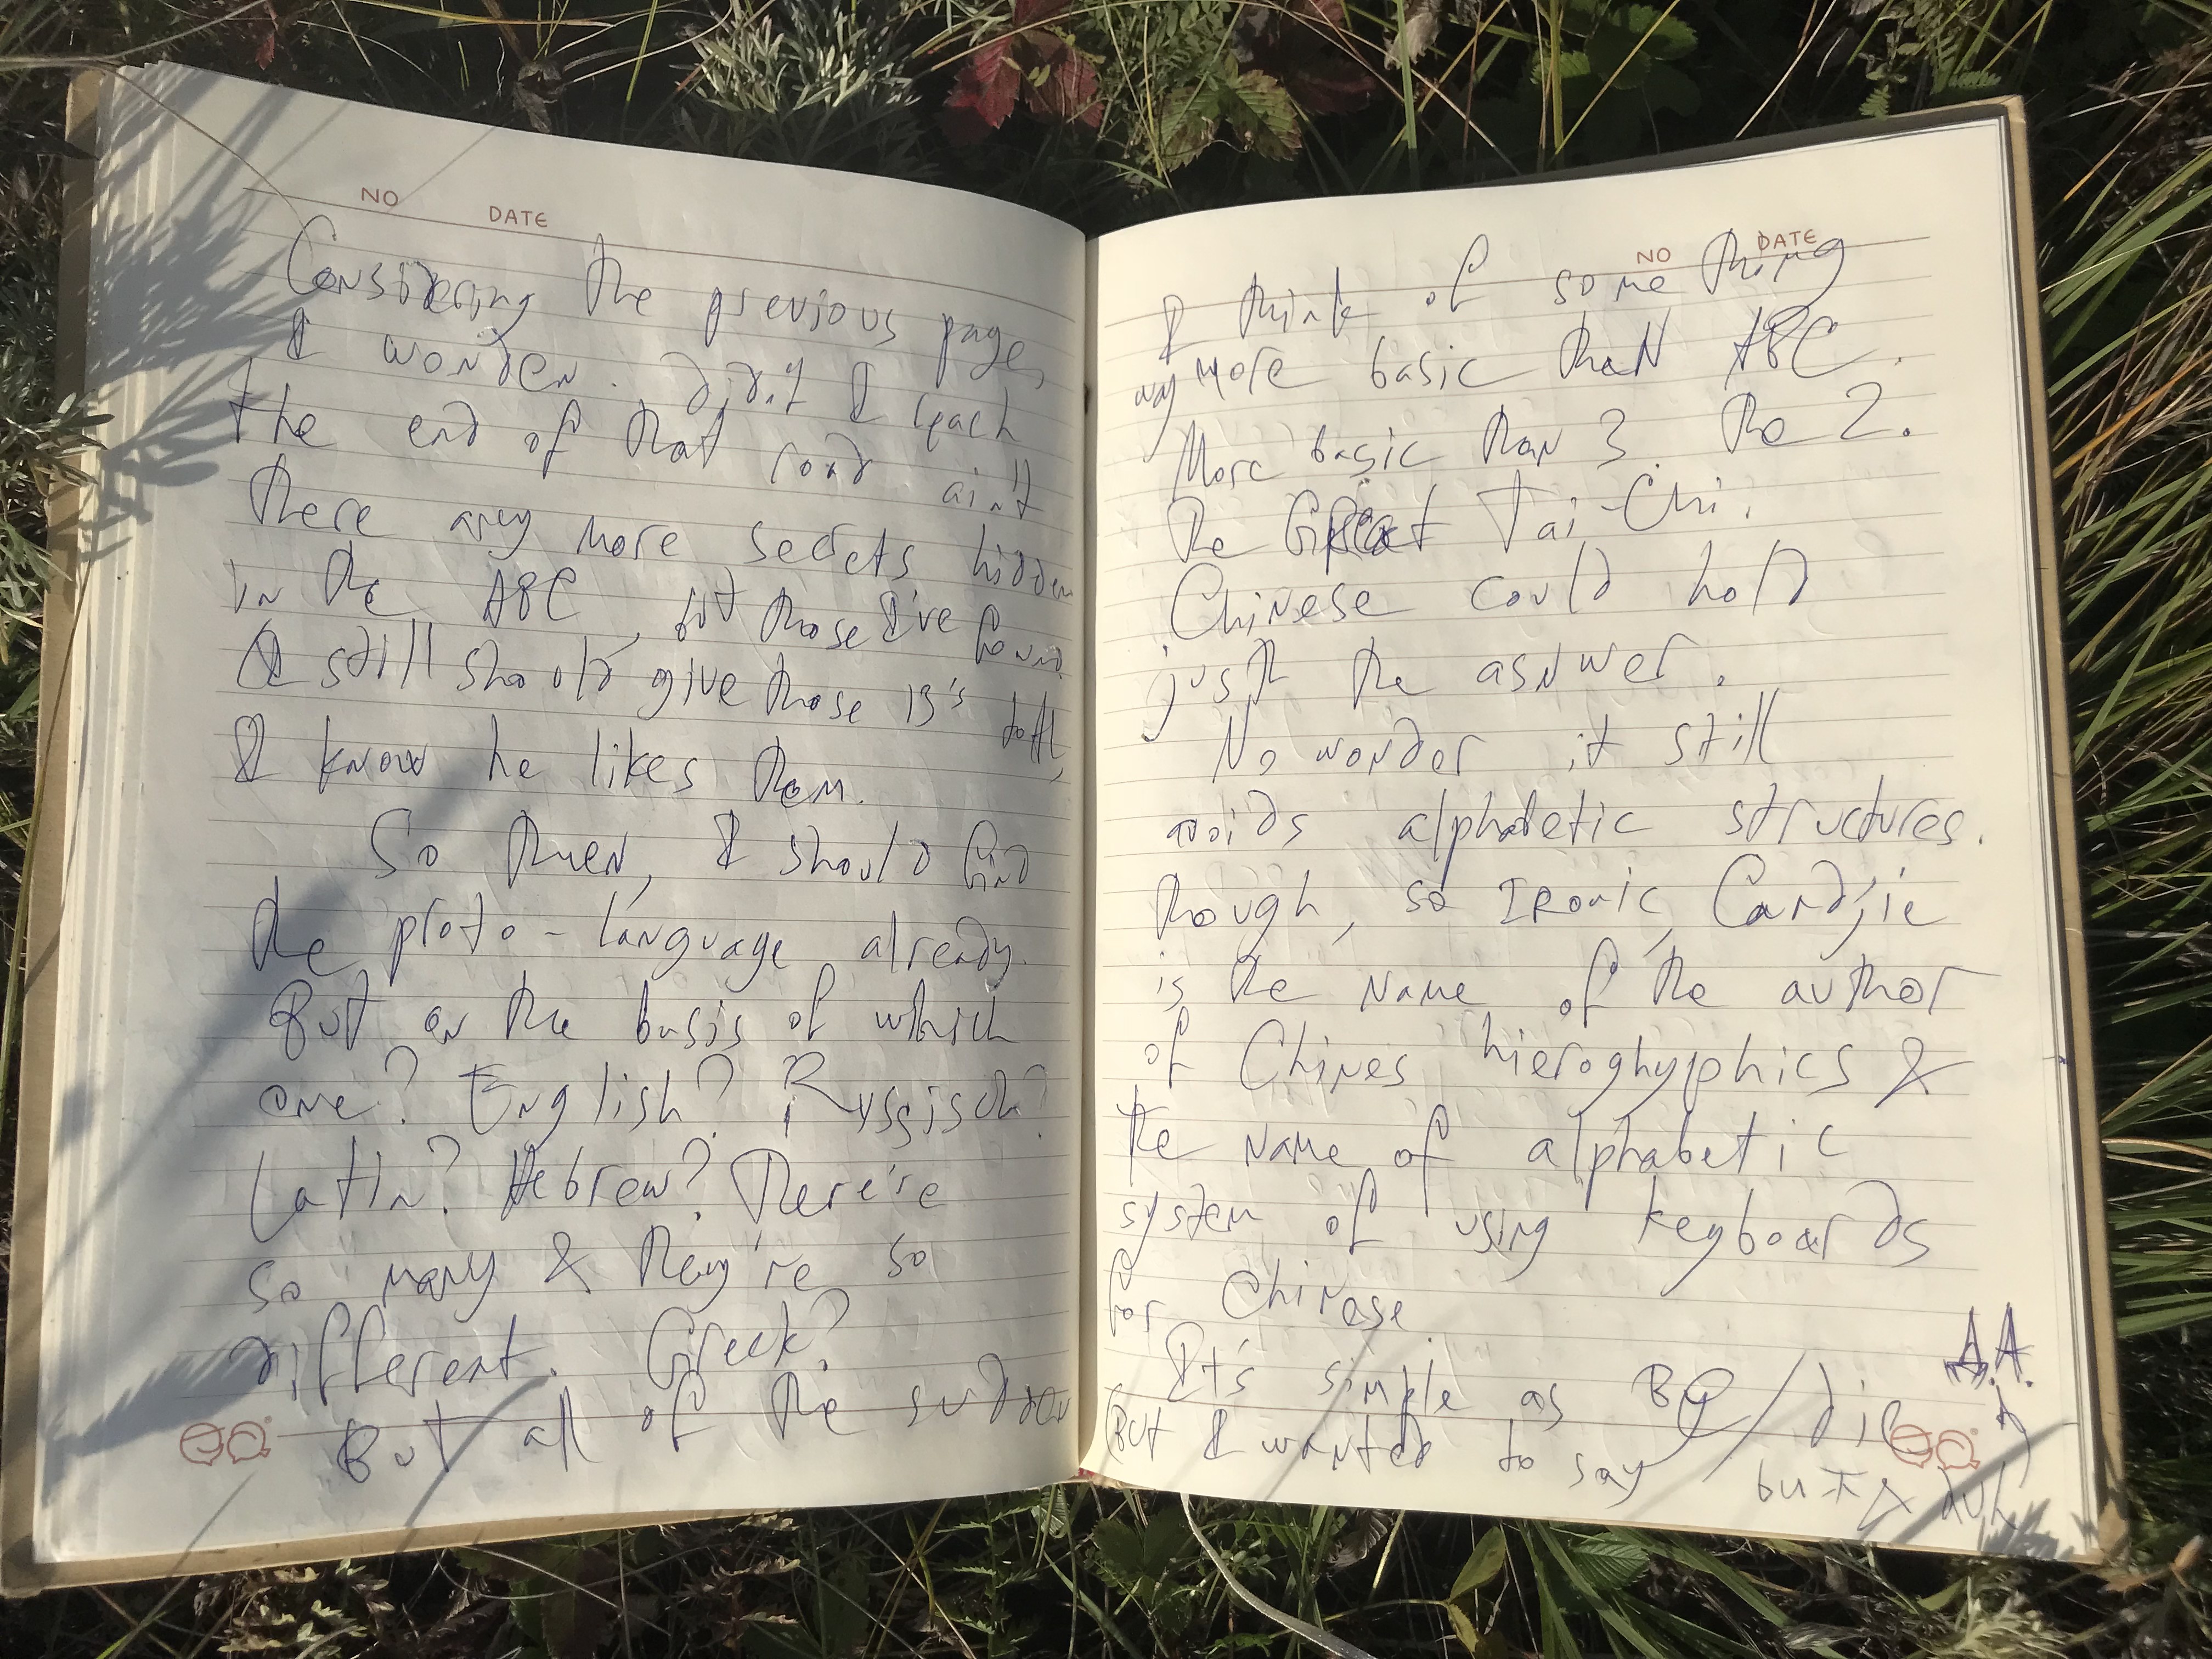 NO DATE
Considering the previous pages,
I wonder. Did I reach
the end of that road
ain't
there any more secrets hidden
in the ABC, but those I've found
I still should give those 13's to
I know he likes them.
So then, I should find
the proto-language already.
But on the basis of which
one? English? Russisch?
Latin? Hebrew? There're
so many & they're so
different. Greek?
But all of the sudden
NO DATE
I think of some thing
my more basic than ABC.
More basic than 3 the 2.
The Great Tai-Chi.
Chinese could hold
just the answer.
No wonder it still
avoids alphabetic structures.
though, so Ironic Candjie
is the name of the author
of Chines hieroghyphics &
the name of alphabetic
system of using keyboards
for Chinase
It's simple as BQ/dip
But I wanted to say but
A.A.